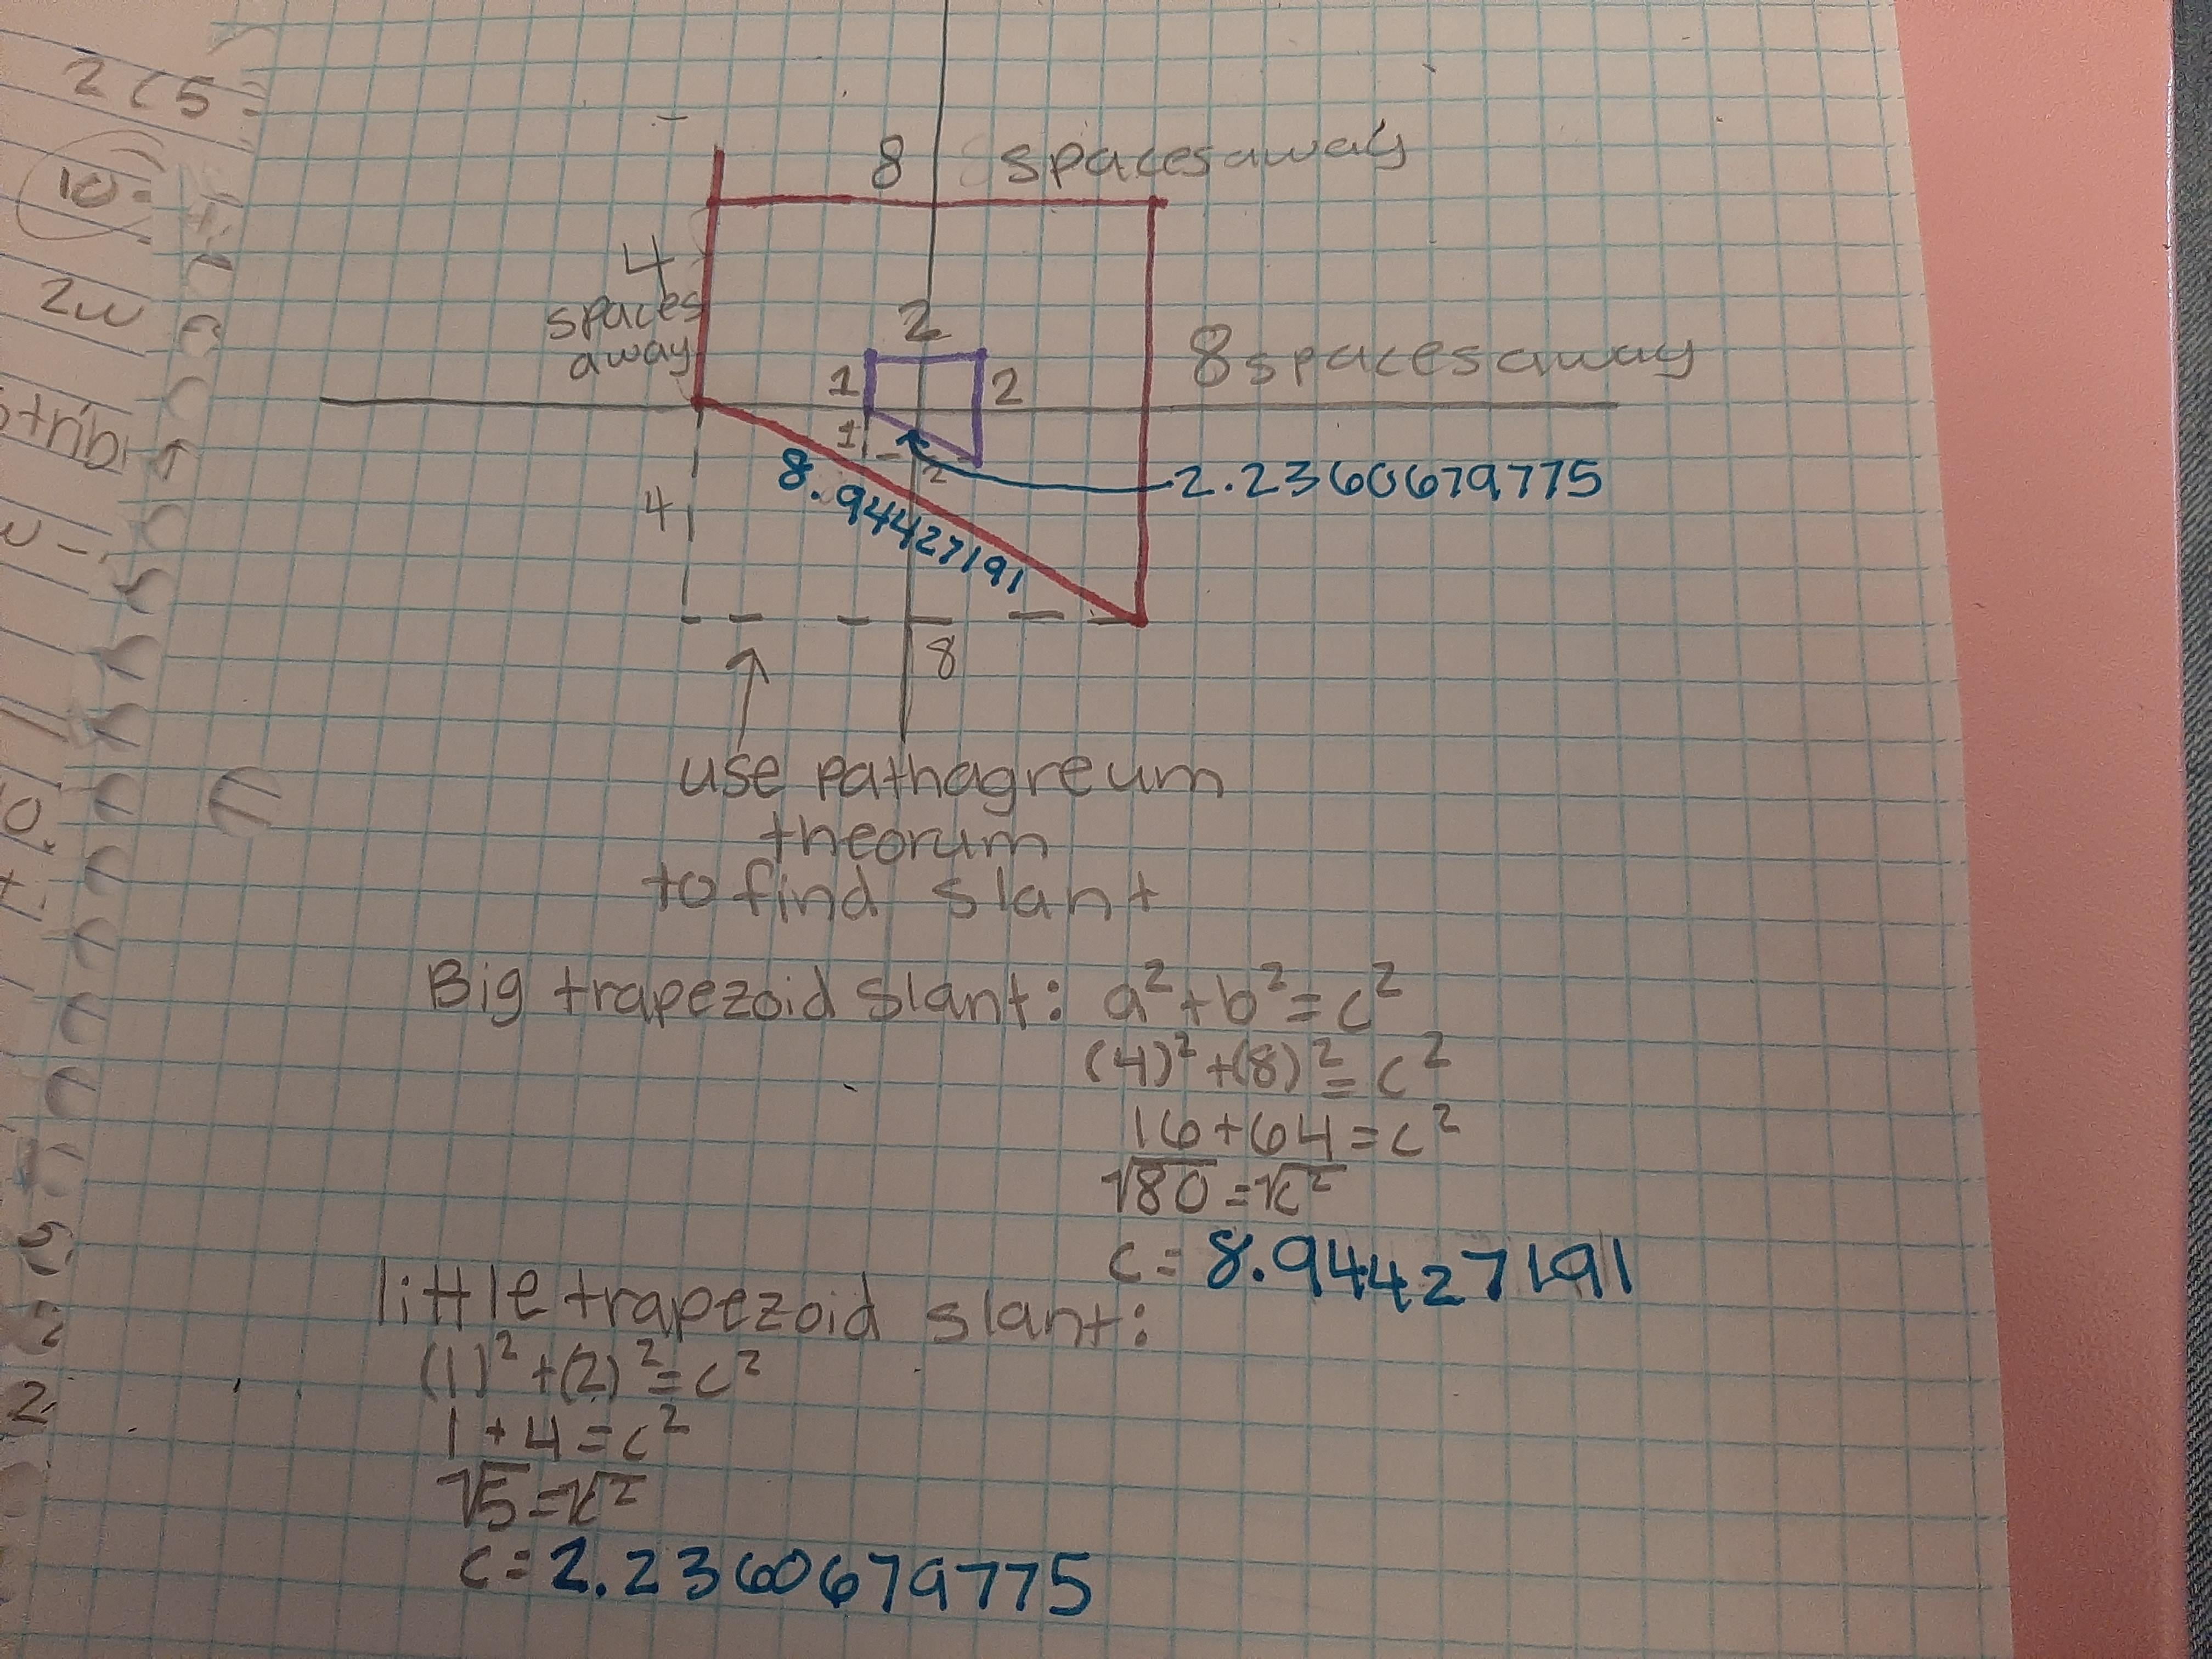 2(5=
10=
2w
8 spaces away
4
spaces
away
2
1
2
8 spaces away
1
2
2.2360679775
8.94427191
4
8
use pathagreum
theorum
to find slant
Big trapezoid slant: a²+b²=c²
(4)²+(8)²=c²
16+64=c²
√80=√c²
c=8.94427191
little trapezoid slant:
(1)²+(2)²=c²
1+4=c²
√5=√c²
c=2.2360679775